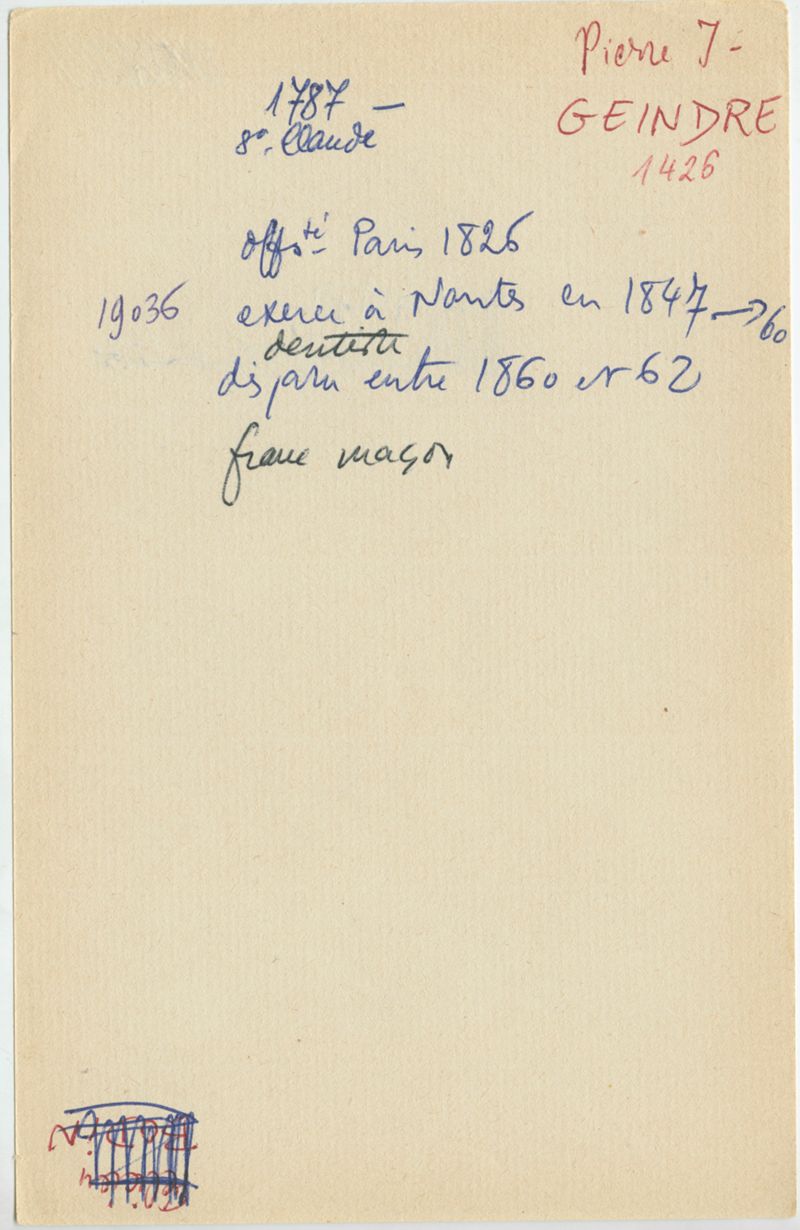 Pierre J-
GEINDRE
1426
1787 —
8°. Claude
offs té Paris 1826
19036 exerce à Nantes en 1847 → 60
dentiste
disparu entre 1860 et 62
franc maçon